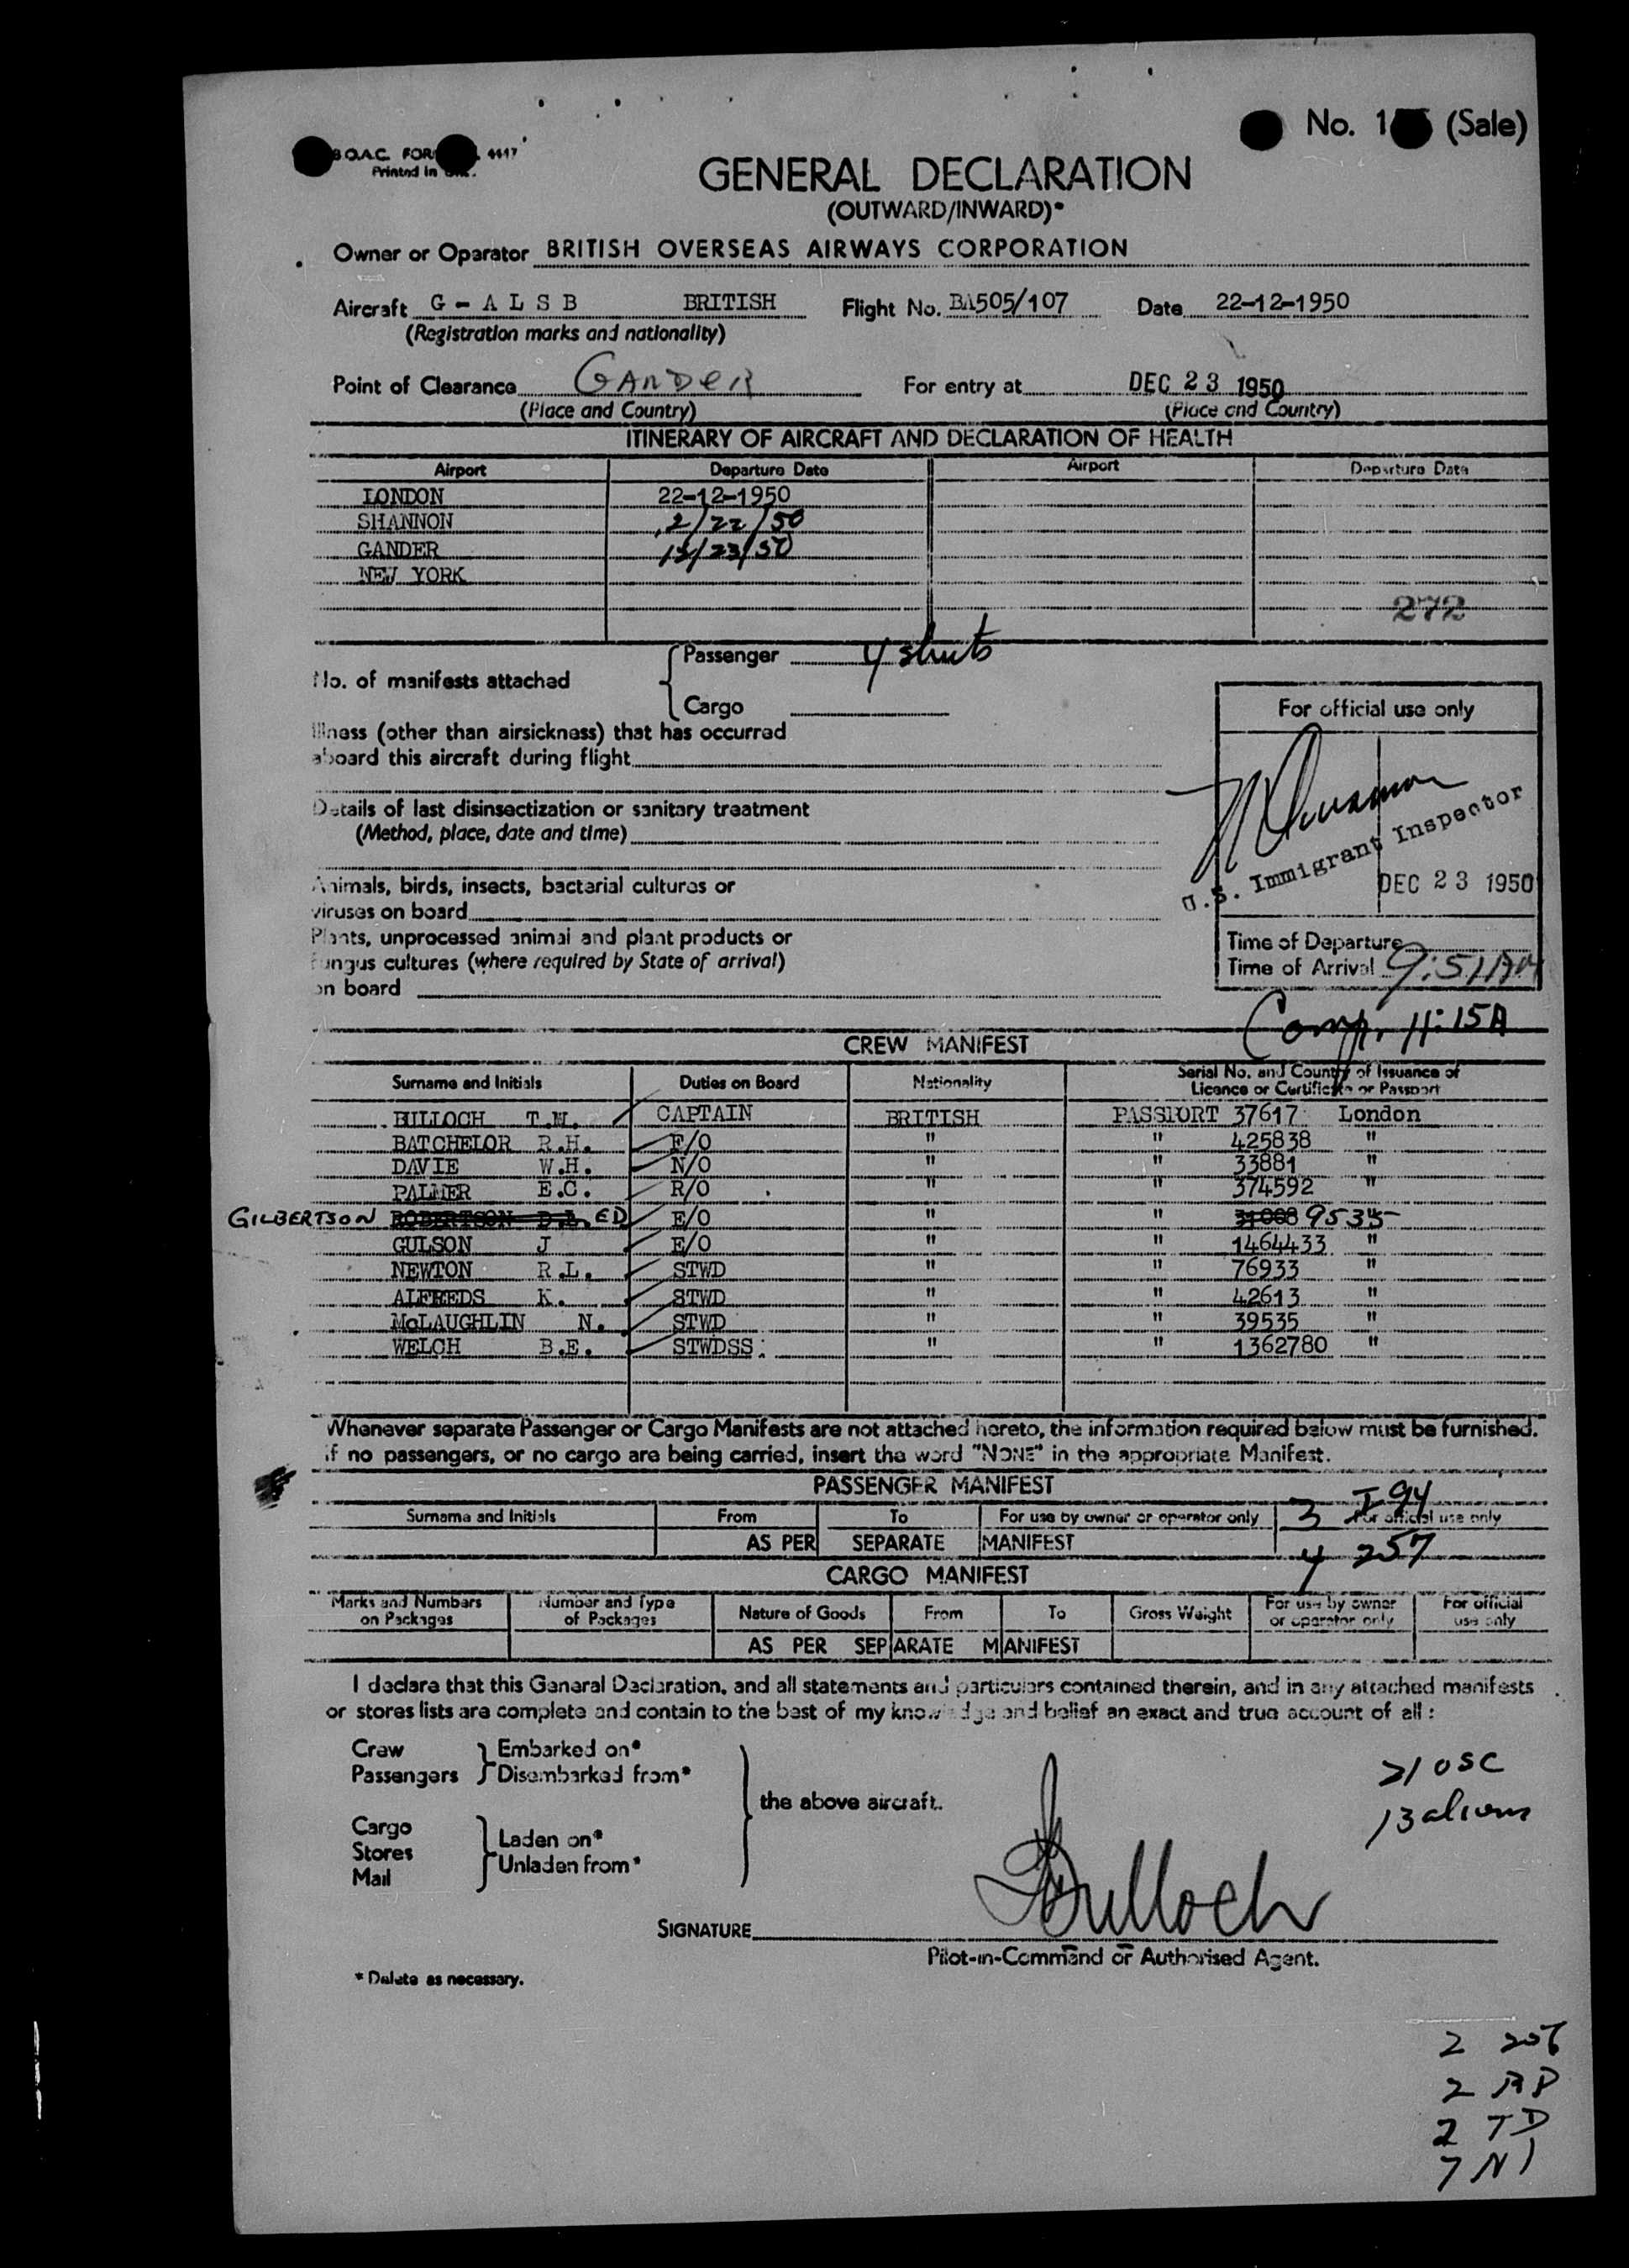 No. 1 (Sale)
B.O.A.C. FORM 4417
Printed in
GENERAL DECLARATION
(OUTWARD/INWARD)*
Owner or Operator BRITISH OVERSEAS AIRWAYS CORPORATION
Aircraft G - A L S B BRITISH Flight No. BA505/107 Date 22-12-1950
(Registration marks and nationality)
Point of Clearance GANDER For entry at DEC 23 1950
(Place and Country) (Place and Country)
ITINERARY OF AIRCRAFT AND DECLARATION OF HEALTH
Airport Departure Date Airport Departure Date
LONDON 22-12-1950
SHANNON 12/22/50
GANDER 12/23/50
NEW YORK
272
No. of manifests attached
Passenger 4 sheets
Cargo
Illness (other than airsickness) that has occurred
aboard this aircraft during flight
Details of last disinsectization or sanitary treatment
(Method, place, date and time)
Animals, birds, insects, bacterial cultures or
viruses on board
Plants, unprocessed animal and plant products or
fungus cultures (where required by State of arrival)
on board
For official use only
U.S. Immigrant Inspector
DEC 23 1950
Time of Departure
Time of Arrival 9:51AM
Comp. 11:15A
CREW MANIFEST
Surname and Initials Duties on Board Nationality Serial No. and Country of Issuance of
Licence or Certificate or Passport
BULLOCH T.M. CAPTAIN BRITISH PASSPORT 37617 London
BATCHELOR R.H. F/O " " 425838 "
DAVIE W.H. N/O " " 33881 "
PALMER E.C. R/O " " 374592 "
GILBERTSON ROBERTSON D.L. ED E/O " " 31008 9535
GULSON J E/O " " 1464433 "
NEWTON R.L. STWD " " 76933 "
ALFREDS K. STWD " " 42613 "
McLAUGHLIN N. STWD " " 39535 "
WELCH B.E. STWDSS " " 1362780 "
Whenever separate Passenger or Cargo Manifests are not attached hereto, the information required below must be furnished.
If no passengers, or no cargo are being carried, insert the word "NONE" in the appropriate Manifest.
PASSENGER MANIFEST
3 I 94
Surname and Initials From To For use by owner or operator only For official use only
AS PER SEPARATE MANIFEST
4 257
CARGO MANIFEST
Marks and Numbers on Packages Number and Type of Packages Nature of Goods From To Gross Weight For use by owner or operator only For official use only
AS PER SEPARATE MANIFEST
I declare that this General Declaration, and all statements and particulars contained therein, and in any attached manifests
or stores lists are complete and contain to the best of my knowledge and belief an exact and true account of all :
Crew Embarked on*
Passengers Disembarked from*
the above aircraft.
Cargo
Stores
Mail
Laden on*
Unladen from*
21 OSC
13 aliens
SIGNATURE Bulloch
Pilot-in-Command or Authorised Agent.
* Delete as necessary.
2 256
2 RP
2 TD
7 NI